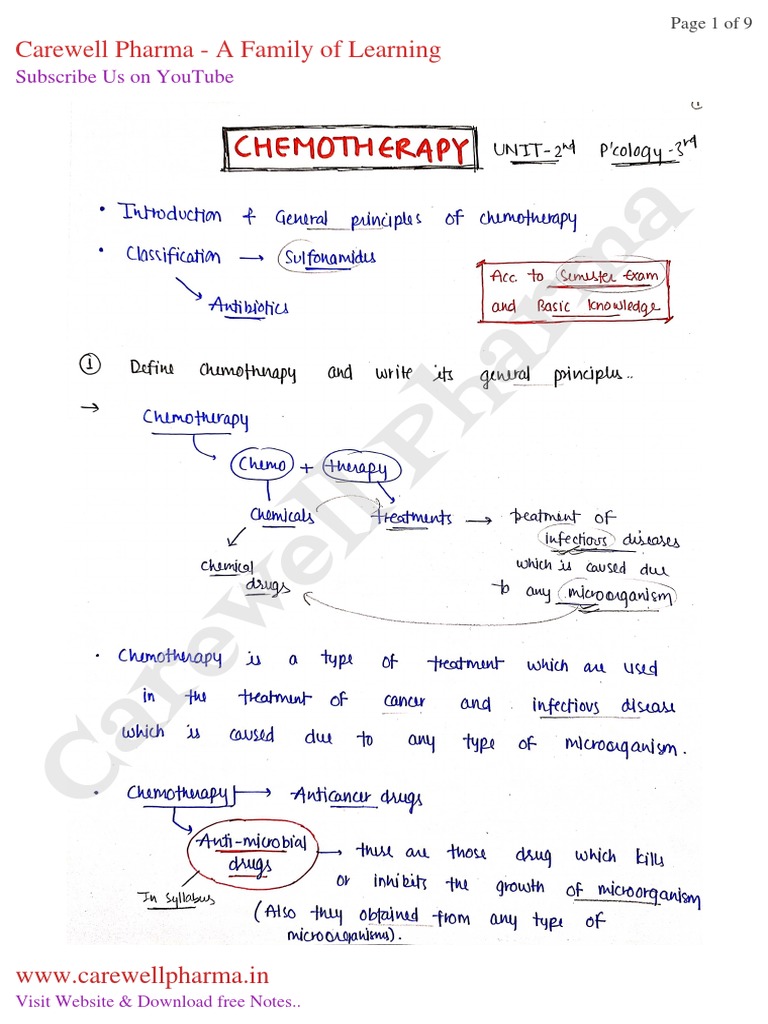 Page 1 of 9
Carewell Pharma - A Family of Learning
Subscribe Us on YouTube
(1
CHEMOTHERAPY UNIT-2nd P'cology-3rd
• Introduction & General principles of chemotherapy
• Classification → Sulfonamides
Antibiotics
Acc. to Semester Exam
and Basic Knowledge
① Define chemotherapy and write its general principles..
→ Chemotherapy
Chemo + therapy
Chemicals treatments → treatment of
infectious diseases
which is caused due
to any microorganism
Chemical
drugs
• Chemotherapy is a type of treatment which are used
in the treatment of cancer and infectious disease
which is caused due to any type of microorganism.
• Chemotherapy → Anticancer drugs
Anti-microbial
drugs → these are those drug which kills
or inhibits the growth of microorganism
In syllabus
(Also they obtained from any type of
microorganisms).
Carewell Pharma
www.carewellpharma.in
Visit Website & Download free Notes..